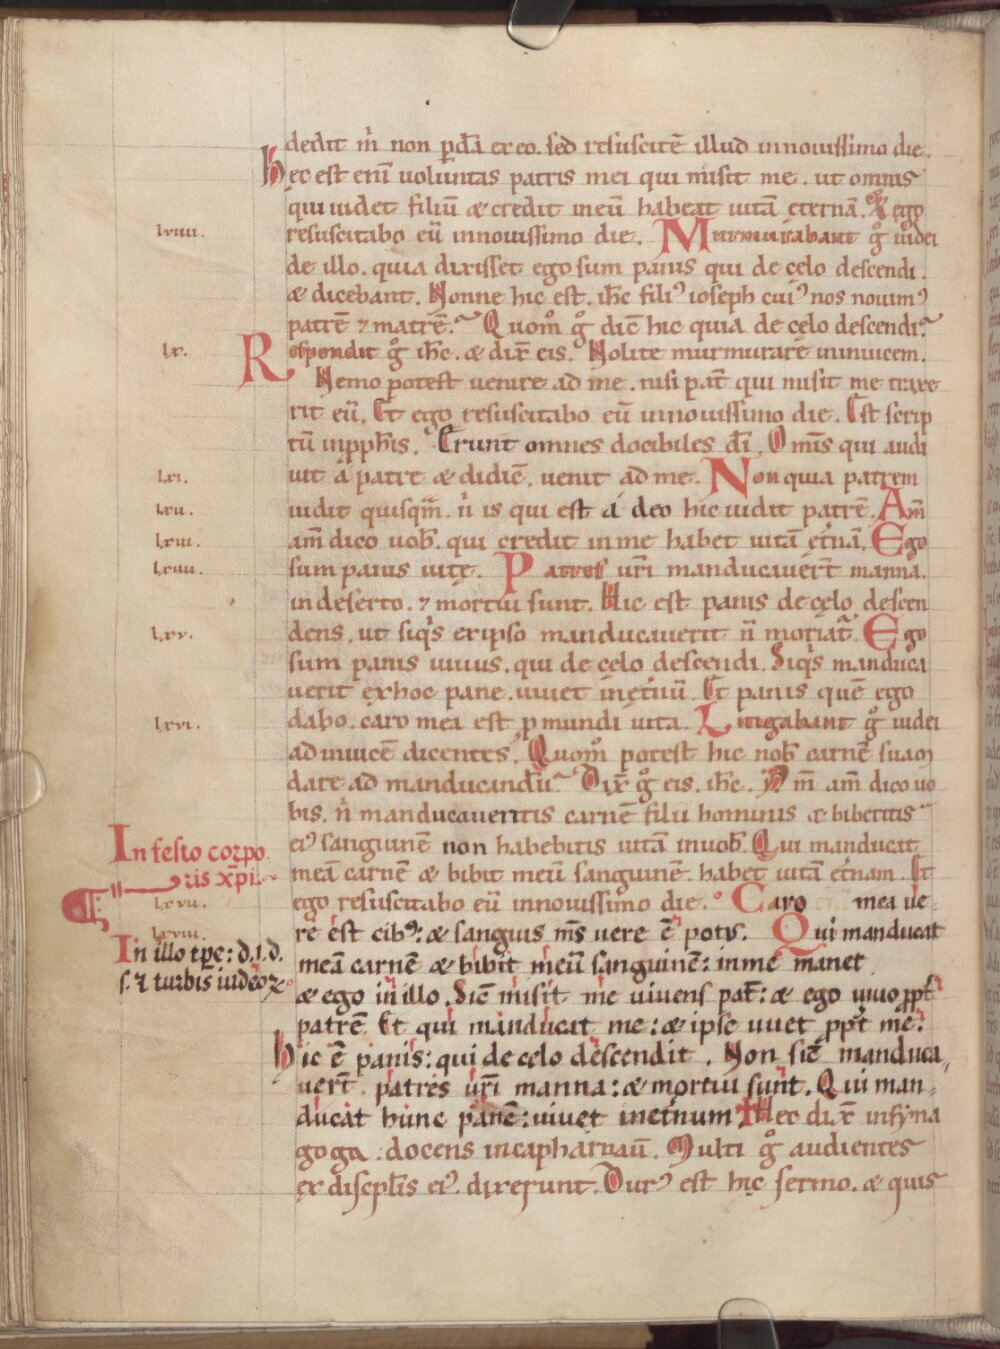 dedit m̄ non ꝑdā ex eo. sed resuscitē illud innouissimo die.
hec est enī uoluntas patris mei qui misit me. ut omnis
qui uidet filiū & credit ineū habeat uitā eternā. & ego
lviiii.
resuscitabo eū innouissimo die. Murmurabant gͦ iudei
de illo. quia dixisset ego sum panis qui de cęlo descendi.
& dicebant. Nonne hic est. ihc̄ filiꝰ ioseph cuiꝰ nos nouimꝰ
patrē ⁊ matrē. Quom̊ gͦ dic̄ hic quia de cęlo descendi?
lx.
Respondit gͦ ihc̄. & dix̄ eis. Nolite murmurare inuicem.
Nemo potest uenire ad me. nisi pat̄ qui misit me traxe
rit eū. Et ego resuscitabo eū innouissimo die. Est scrip
tū inpph̄is. Erunt omnes docibiles dī. Omīs qui audi
lxi.
uit a patre & didic̄. uenit ad me. Non quia patrem
lxii.
uidit quisqm̄. n̄ is qui est a deo hic uidit patrē. Am̄
lxiii.
am̄ dico uob̄. qui credit in me habet uitā et̄nā. Ego
lxiiii.
sum panis uitę. Patres ur̄i manducauer̄t manna.
in deserto. ⁊ mortui sunt. Hic est panis de cęlo descen
lxv.
dens. ut siqͥs ex ipso manducauerit n̄ moriat̄. Ego
sum panis uiuus. qui de cęlo descendi. Siqͥs manduca
uerit ex hoc pane. uiuet inet̄nū. Et panis quē ego
lxvi.
dabo. caro mea est ꝑ mundi uita. Litigabant gͦ iudei
ad inuicē dicentes. Quom̊ potest hic nob̄ carnē suam
dare ad manducandū? Dix̄ gͦ eis. ihc̄. Am̄ am̄ dico uo
bis. n̄ manducaueritis carnē filii hominis & biberitis
eiꝰ sanguinē non habebitis uitā inuob̄. Qui manducat
In festo corpo
ris xp̄i.
meā carnē & bibit meū sanguinē. habet uitā et̄nam. Et
lxvii.
ego resuscitabo eū innouissimo die. Caro mea ue-
lxviii.
re est cibꝰ: & sanguis m̄s uere ē potꝰ. Qui manducat
In illo tp̄e: d.i.d.
s. ⁊ turbis iudeoꝝ
meā carnē & bibit meū sanguinē: in me manet
& ego in illo. Sic̄ misit me uiuens pat̄: & ego uiuo ꝓpt̄
patrē. Et qui manducat me: & ipse uiuet ꝓpt̄ me.
hic ē panis: qui de celo descendit. Non sic̄ manduca
uer̄t patres ur̄i manna: & mortui sunt. Qui man-
ducat hunc panē: uiuet inet̄num Hec dix̄ in syna
goga: docens in capharnaū. Multi gͦ audientes
ex discipl̄is eiꝰ. dixerunt. Durꝰ est hic sermo. & quis